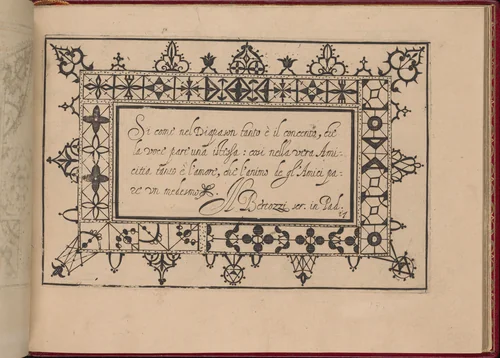 Si come nel Diapason tanto è il concento, che
la voce pare una stessa: così nella vera Ami-
citia tanto è l'amore, che l'animo de gl'Amici pa-
re un medesmo.
M. Bertozzi scr. in Pad.